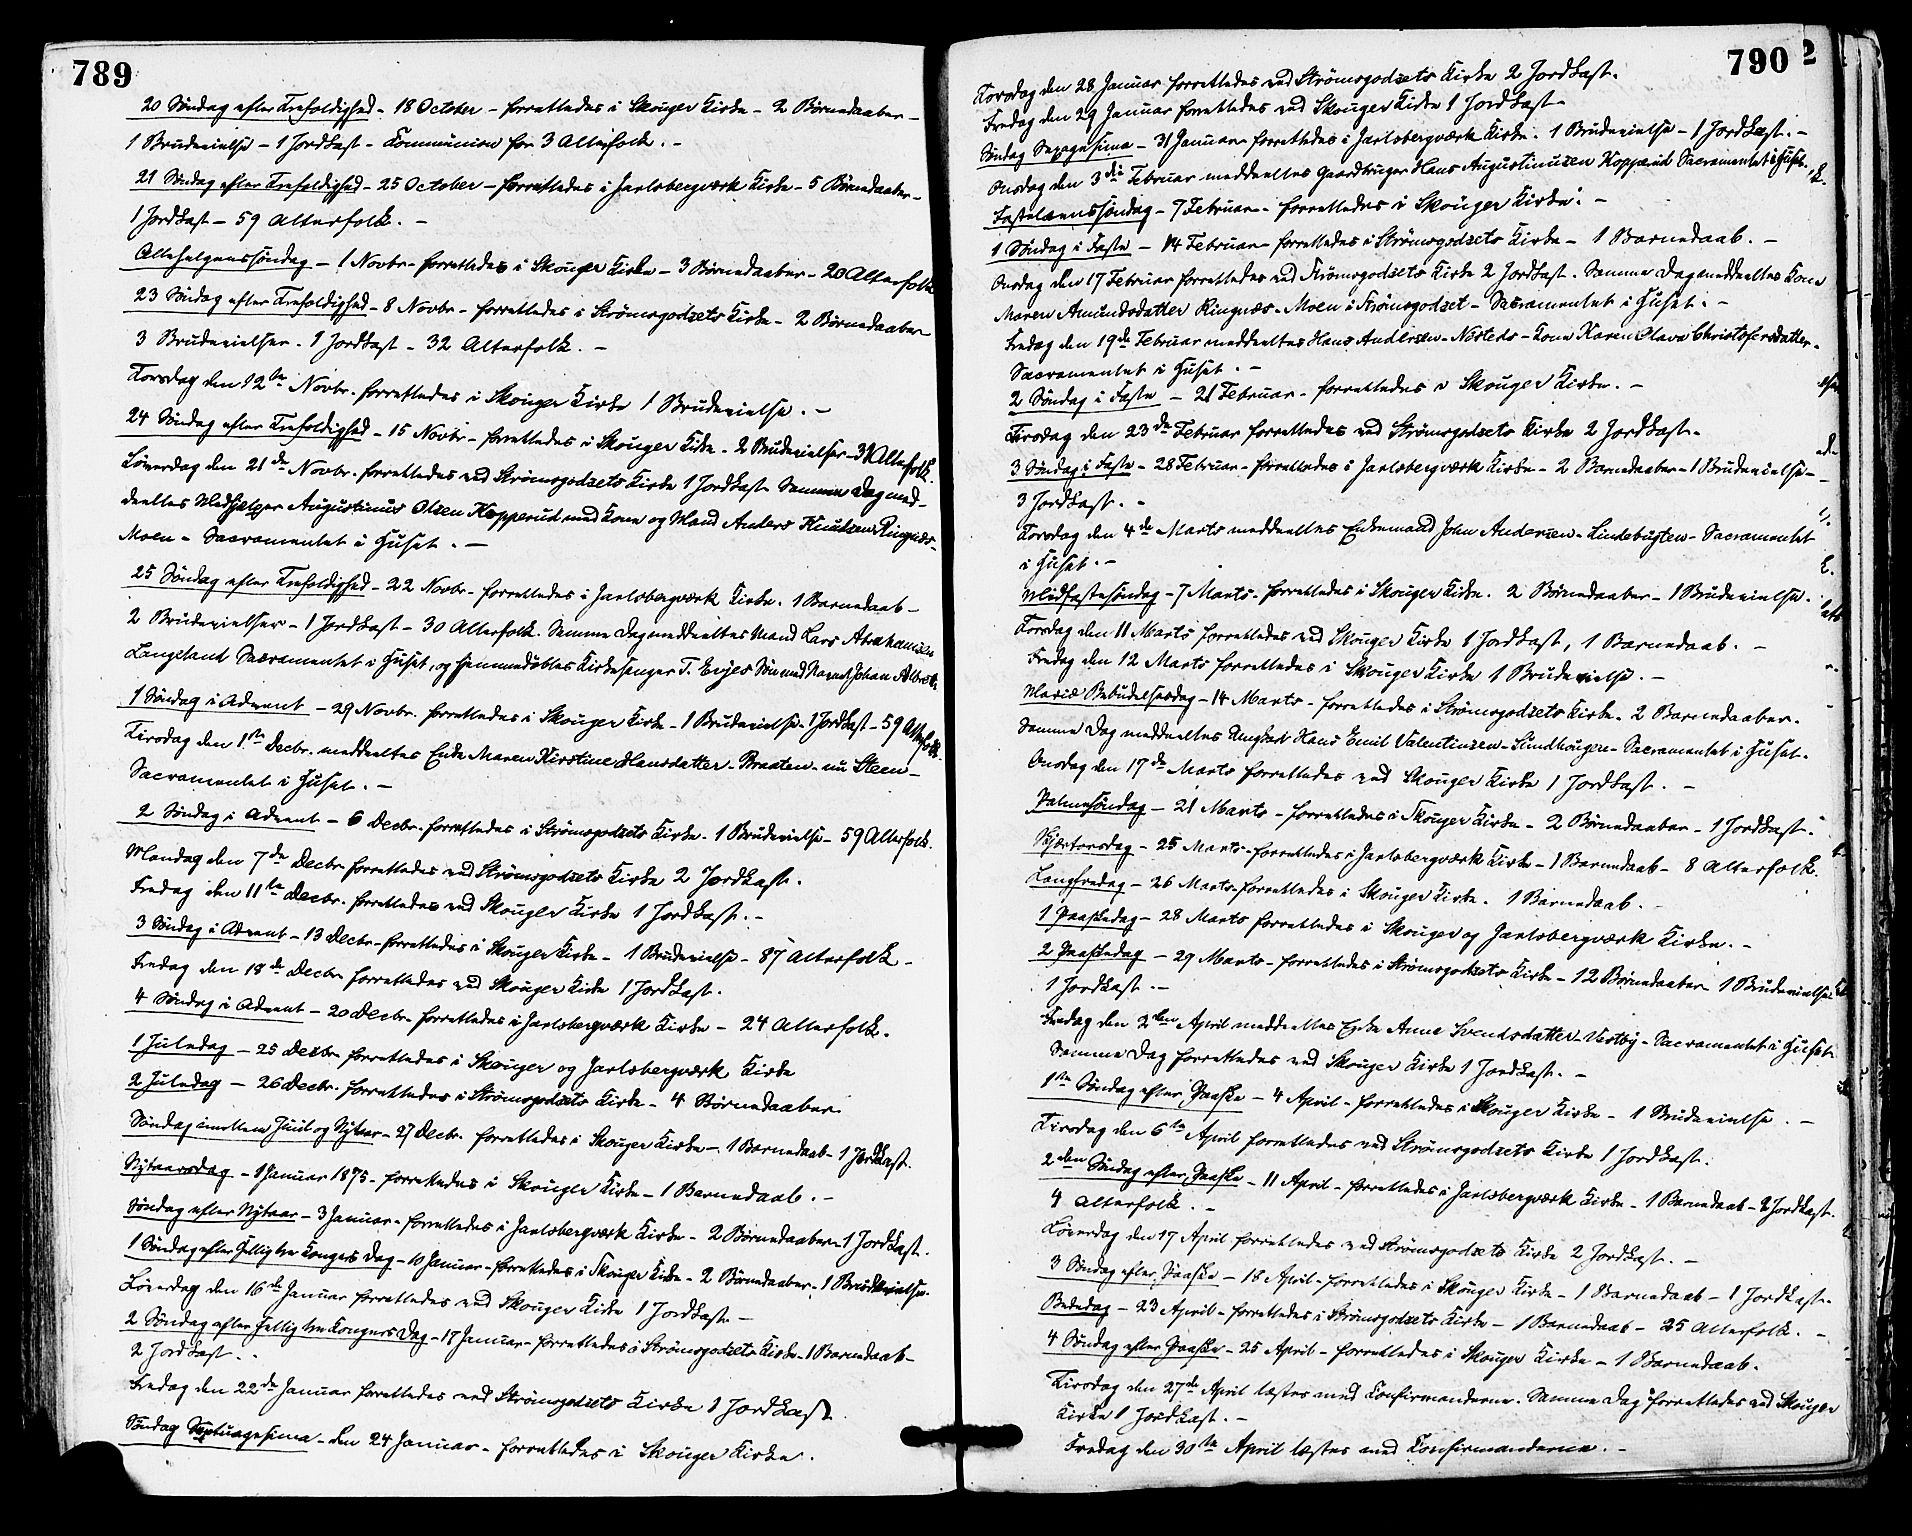 789
20 Søndag efter Trefoldighed - 18 October - forrettedes i Skouger Kirke - 2 Børnedaaber -
1 Brudevielse - 1 Jordkast - Communion for 3 Alterfolk. -
21 Søndag efter Trefoldighed - 25 October - forrettedes i Jarlsbergværk Kirke - 5 Børnedaaber -
1 Jordkast - 59 Alterfolk. -
Allehelgenssøndag - 1 Novbr - forrettedes i Skouger Kirke - 3 Børnedaaber - 20 Alterfolk
23 Søndag efter Trefoldighed - 8 Novbr - forrettedes i Strömsgodsets Kirke - 2 Børnedaaber
3 Brudevielser - 1 Jordkast - 32 Alterfolk. -
Torsdag den 12te Novbr. forrettedes i Skouger Kirke 1 Brudevielse. -
24 Søndag efter Trefoldighed - 15 Novbr - forrettedes i Skouger Kirke - 2 Brudevielser - Alterfolk.
Löverdag den 21de Novbr. forrettedes ved Strömsgodsets Kirke 1 Jordkast Samme Dag med-
deeltes Medhjælper Augustinus Olsen Kopperud med Kone og Mand Anders Knudsen Ringnæs-
Moen - Sacramentet i Huset. -
25 Søndag efter Trefoldighed - 22 Novbr - forrettedes i Jarlsbergværk Kirke. 1 Barnedaab -
2 Brudevielser - 1 Jordkast - 30 Alterfolk. Samme Dag meddeeltes Mand Lars Abrahamsen
Langeland Sacramentet i Huset, og hjemmedøbtes Kirkesanger T. Evjes Søn med Navnet Johan
1 Søndag i Advent - 29 Novbr. forrettedes i Skouger Kirke - 1 Brudevielse - 1 Jordkast - 59 Alterfolk.
Tirsdag den 1ste Decbr. meddeeltes Enke Maren Kirstine Hansdatter - Braaten - nu Steen -
Sacramentet i Huset. -
2 Søndag i Advent - 6 Decbr. forrettedes i Strömsgodsets Kirke - 1 Brudevielse - 59 Alterfolk.
Mandag den 7de Decbr forrettedes ved Strömsgodsets Kirke 2 Jordkast.
Fredag den 11te Decbr. forrettedes ved Skouger Kirke 1 Jordkast. -
3 Søndag i Advent - 13 Decbr - forrettedes i Skouger Kirke - 1 Brudevielse - 87 Alterfolk -
Fredag den 18de Decbr forrettedes ved Skouger Kirke 1 Jordkast.
4 Søndag i Advent - 20 Decbr - forrettedes i Jarlsbergværk Kirke - 24 Alterfolk.
1 Juledag - 25 Decbr forrettedes i Skouger og Jarlsbergværk Kirke
2 Juledag - 26 Decbr. forrettedes i Strömsgodsets Kirke - 4 Børnedaaber
Søndag imellem Juul og Nytaar - 27 Decbr. forrettedes i Skouger Kirke - 1 Barnedaab - 1 Jordkast.
Nytaarsdag - 1 Januar 1875 - forrettedes i Skouger Kirke - 1 Barnedaab. -
Søndag efter Nytaar - 3 Januar - forrettedes i Jarlsbergværk Kirke - 2 Børnedaaber - 1 Jordkast.
1 Søndag efter Hellig tre Kongers Dag - 10 Januar - forrettedes i Skouger Kirke - 2 Børnedaaber - 1 Brudevielse.
Löverdag den 16de Januar forrettedes ved Skouger Kirke 1 Jordkast -
2 Søndag efter Hellig tre Kongers Dag - 17 Januar - forrettedes i Strömsgodsets Kirke - 1 Barnedaab -
2 Jordkast. -
Fredag den 22de Januar forrettedes ved Strömsgodsets Kirke 1 Jordkast
Søndag Septuagesima - den 24 Januar - forrettedes i Skouger Kirke.
790
2
Torsdag den 28 Januar forrettedes ved Strömsgodsets Kirke 2 Jordkast.
Fredag den 29 Januar forrettedes ved Skouger Kirke 1 Jordkast -
Søndag Sexagesima - 31 Januar - forrettedes i Jarlsbergværk Kirke. 1 Brudevielse - 1 Jordkast. -
Onsdag den 3die Februar meddeeltes Gaardbruger Hans Augustinusen Kopperud Sacramentet i Huset.
Fastelavnssøndag - 7 Februar - forrettedes i Skouger Kirke. -
1 Søndag i Faste - 14 Februar - forrettedes i Strömsgodsets Kirke - 1 Barnedaab. -
Onsdag den 17 Februar forrettedes ved Strömsgodsets Kirke 2 Jordkast. Samme Dag meddeeltes Kone
Maren Amundsdatter Ringnæs - Moen i Strömsgodset - Sacramentet i Huset. -
Fredag den 19de Februar meddeeltes Hans Andersen - Nörsteds - Kone Karen Olava Christofersdatter -
Sacramentet i Huset. -
2 Søndag i Faste - 21 Februar - forrettedes i Skouger Kirke. -
Tirsdag den 23de Februar forrettedes ved Strömsgodsets Kirke 2 Jordkast.
3 Søndag i Faste - 28 Februar - forrettedes i Jarlsbergværk Kirke - 2 Børnedaaber - 1 Brudevielse -
3 Jordkast. -
Torsdag den 4de Marts meddeeltes Enkemand John Andersen - Lindebugten - Sacramentet
i Huset. -
Midfastesøndag - 7 Marts - forrettedes i Skouger Kirke. 2 Børnedaaber - 1 Brudevielse.
Torsdag den 11 Marts forrettedes ved Skouger Kirke 1 Jordkast, 1 Barnedaab. -
Fredag den 12 Marts forrettedes i Skouger Kirke 1 Brudevielse. -
Mariæ Bebudelsesdag - 14 Marts - forrettedes i Strömsgodsets Kirke. 2 Børnedaaber.
Samme Dag meddeeltes Ungkarl Hans Emil Valentinsen - Sindhougen - Sacramentet i Huset.
Onsdag den 17de Marts forrettedes ved Skouger Kirke 1 Jordkast. -
Palmesøndag - 21 Marts - forrettedes i Skouger Kirke - 2 Børnedaaber - 1 Jordkast.
Skjærtorsdag - 25 Marts - forrettedes i Jarlsbergværk Kirke - 1 Barnedaab - 8 Alterfolk.
Langfredag - 26 Marts - forrettedes i Skouger Kirke. 1 Barnedaab. -
1 Paaskedag - 28 Marts forrettedes i Skouger og Jarlsbergværk Kirke. -
2 Paaskedag - 29 Marts - forrettedes i Strömsgodsets Kirke - 12 Børnedaaber 1 Brudevielse
1 Jordkast. -
Fredag den 2den April meddeeltes Enke Anne Svendsdatter - Vestby - Sacramentet i Huset
Samme Dag forrettedes ved Skouger Kirke 1 Jordkast. -
1ste Søndag efter Paaske - 4 April - forrettedes i Skouger Kirke - 1 Brudevielse. -
Tirsdag den 6te April forrettedes ved Strömsgodsets Kirke 1 Jordkast.
2den Søndag efter Paaske - 11 April - forrettedes i Jarlsbergværk Kirke - 1 Barnedaab - 2 Jordkast.
4 Alterfolk. -
Löverdag den 17 April forrettedes ved Strömsgodsets Kirke 2 Jordkast. -
3 Søndag efter Paaske - 18 April - forrettedes i Skouger Kirke - 1 Barnedaab - 1 Jordkast.
Bededag - 23 April - forrettedes i Strömsgodsets Kirke - 1 Barnedaab - 25 Alterfolk. -
4 Søndag efter Paaske - 25 April - forrettedes i Skouger Kirke - 1 Barnedaab.
Tirsdag den 27de April læstes med Confirmanderne. Samme Dag forrettedes ved Skouger
Kirke 1 Jordkast. -
Fredag den 30te April læstes med Confirmanderne. -